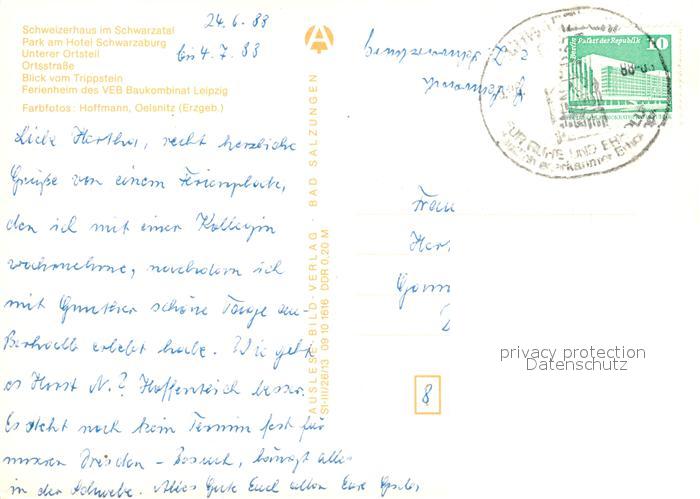 Schweizerhaus im Schwarzatal
Park am Hotel Schwarzaburg
Unterer Ortsteil
Ortsstraße
Blick vom Trippstein
Ferienheim des VEB Baukombinat Leipzig
Farbfotos: Hoffmann, Oelsnitz (Erzgeb.)
24.6.88
bis 4.7.88
Liebe Hertha, recht herzliche
Grüße von einem Ferienplatz,
den ich mit einer Kollegin
wahrnehme, nachdem ich
mit Gunther schöne Tage
erlebt habe. Wie geht
es Horst N.? Hoffentlich besser.
Es steht noch kein Termin fest für
unseren Dresden - Besuch, hängt alles
in der Schwebe. Alles Gute Euch allen Eure
AUSLESE-BILD-VERLAG · BAD SALZUNGEN
SI-III/26/13 09 10 1616 DDR 0,20 M
Palast der Republik
10
FÜR RUHE UND
Frau
Her
8
privacy protection
Datenschutz